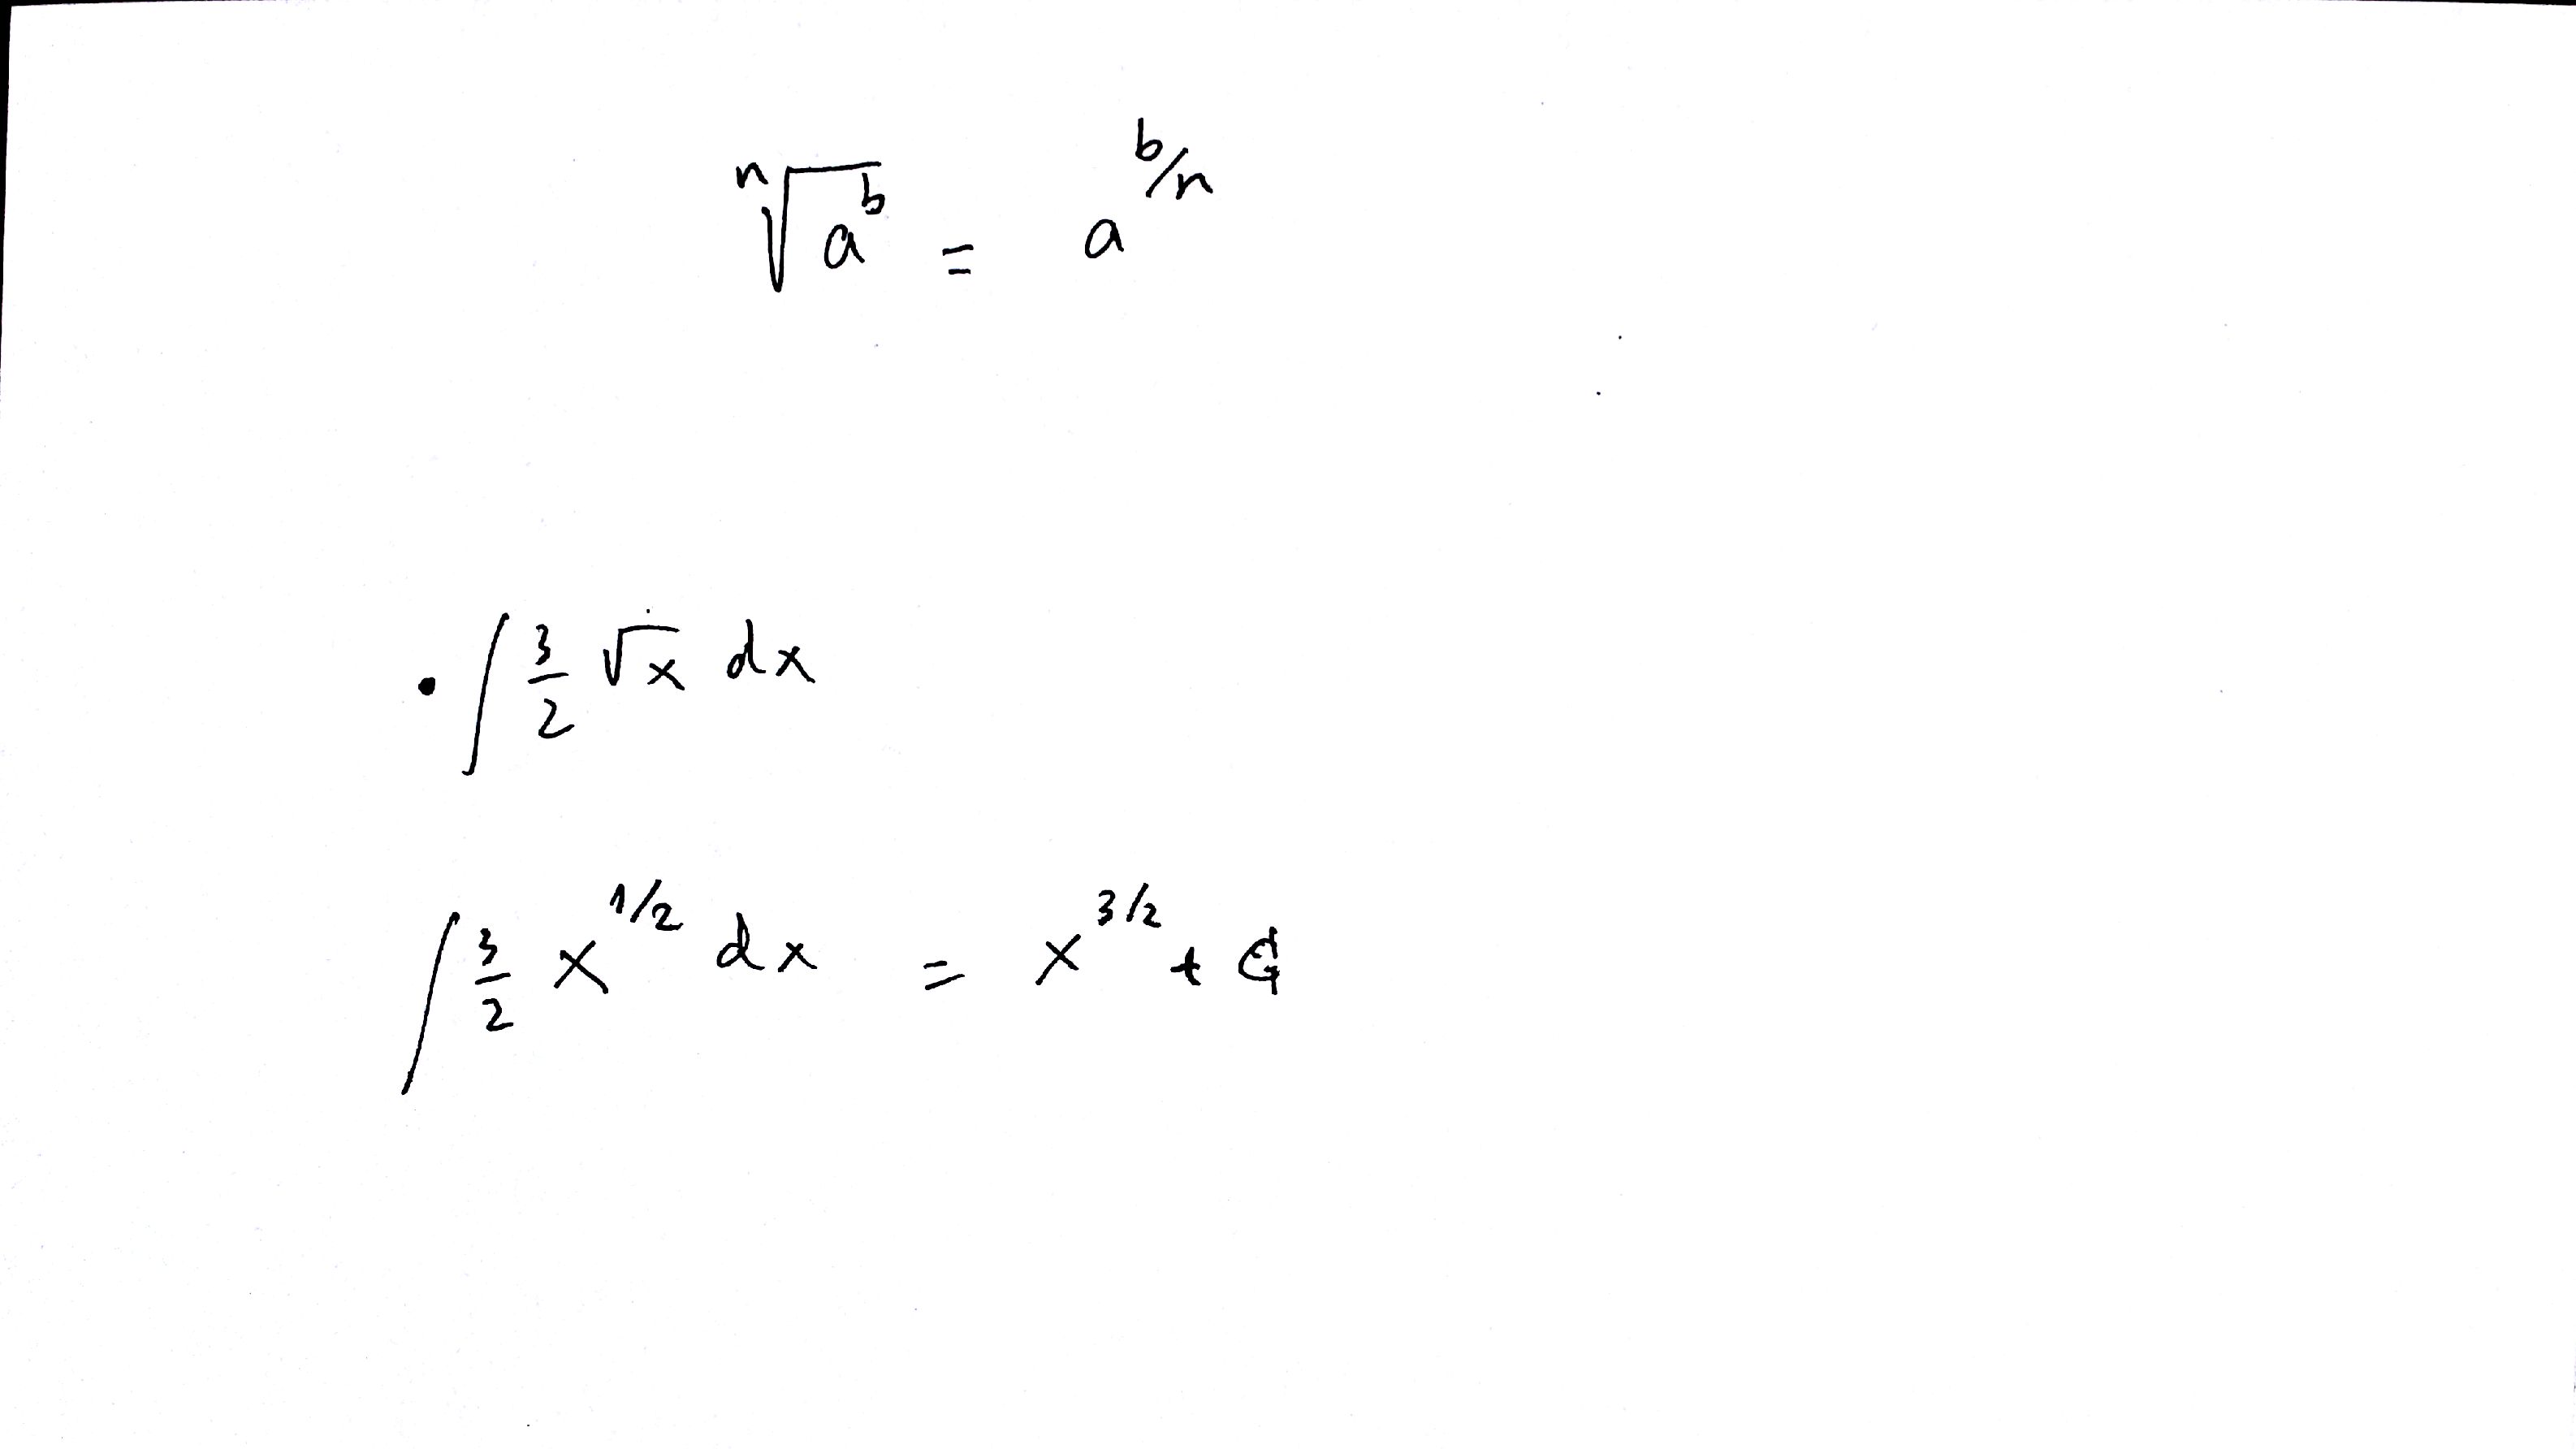 ⁿ√aᵇ = a^(b/n)
• ∫ 3/2 √x dx
∫ 3/2 x^(1/2) dx = x^(3/2) + C